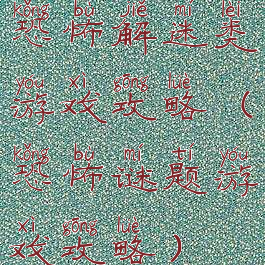 kǒng bù jiě mí lèi
恐怖解迷类
yóu xì gōng lüè
游戏攻略（
kǒng bù mí tí yóu
恐怖谜题游
xì gōng lüè
戏攻略）